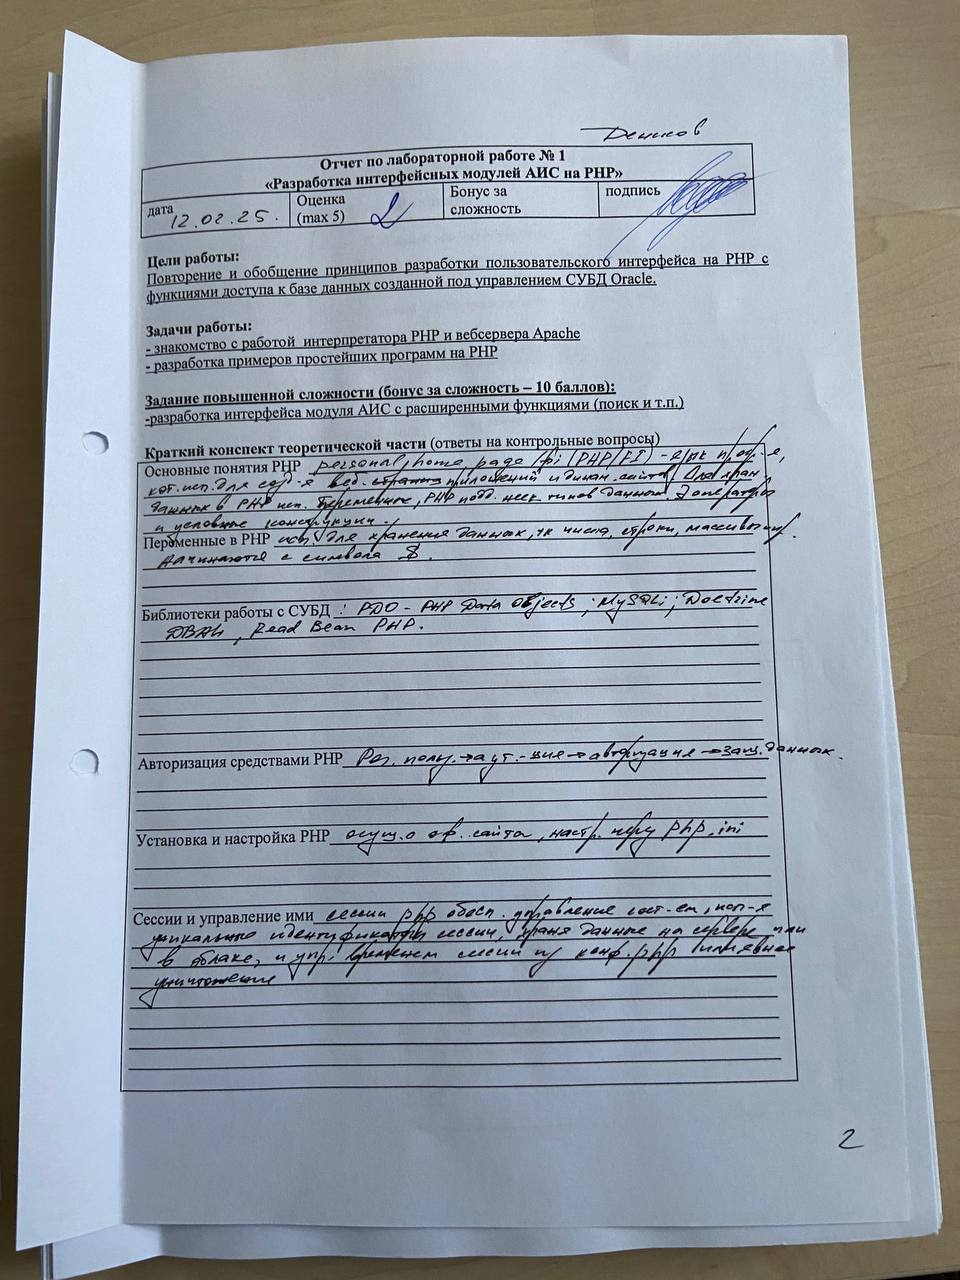 Отчет по лабораторной работе № 1
«Разработка интерфейсных модулей АИС на PHP»
дата 12.02.25. Оценка (max 5) 2 Бонус за сложность подпись
Цели работы:
Повторение и обобщение принципов разработки пользовательского интерфейса на PHP с
функциями доступа к базе данных созданной под управлением СУБД Oracle.
Задачи работы:
- знакомство с работой интерпретатора PHP и вебсервера Apache
- разработка примеров простейших программ на PHP
Задание повышенной сложности (бонус за сложность – 10 баллов):
-разработка интерфейса модуля АИС с расширенными функциями (поиск и т.п.)
Краткий конспект теоретической части (ответы на контрольные вопросы)
Основные понятия PHP personal home page / (PHP/FI) -
кот. исп. для веб. приложений и динам. сайтов. Для хран.
данных в PHP исп. переменные, PHP подд. неск. типов данных. операторы
и условные конструкции.
Переменные в PHP исп. для хранения данных, тк числа, строки, массивы
начинаются с символа $.
Библиотеки работы с СУБД : PDO - PHP Data Objects; MySQLi; Doctrine
DBAL, Read Bean PHP.
Авторизация средствами PHP Рег. польз. → аут.-ция → авторизация → защ. данных.
Установка и настройка PHP осущ. с оф. сайта, настр. через php.ini
Сессии и управление ими сессии php обесп. управление сост-ем,
уникальные идентификаторы сессии, храня данные на сервере или
в облаке, и упр. временем сессии из конф. php
уничтожение
2